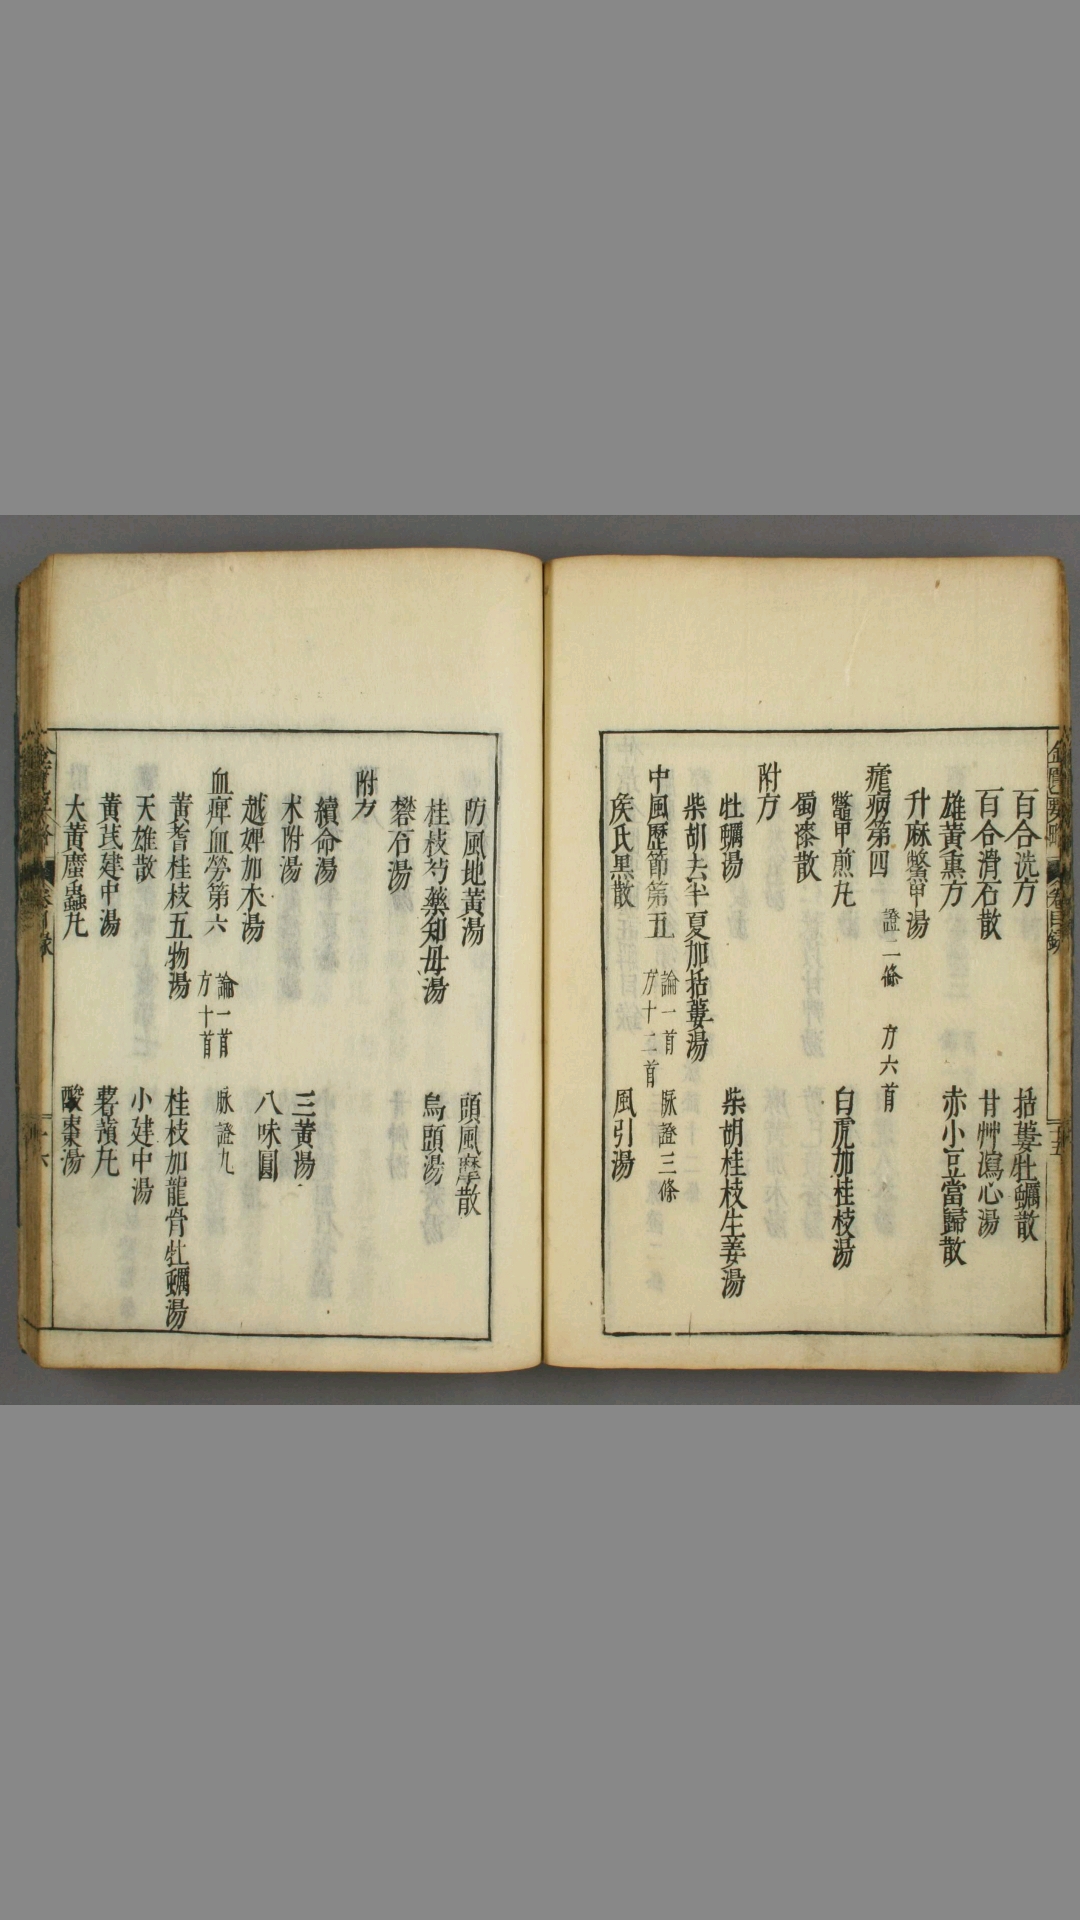 百合洗方　栝蔞牡蠣散
百合滑石散　甘艸瀉心湯
雄黃熏方　赤小豆當歸散
升麻鱉甲湯
瘧病第四　證二條　方六首
鱉甲煎九　白虎加桂枝湯
蜀漆散
附方
牡蠣湯　柴胡桂枝生姜湯
柴胡去半夏加栝蔞湯
中風歷節第五　論一首　脉證三條　方十二首
矦氏黑散　風引湯
防風地黃湯　頭風摩散
桂枝芍藥知母湯　烏頭湯
礬石湯
附方
續命湯　三黃湯
术附湯　八味圓
越婢加术湯
血痺血勞第六　論一首　脉證九　方十首
黃耆桂枝五物湯　桂枝加龍骨牡蠣湯
天雄散　小建中湯
黃芪建中湯　薯蕷圥
大黃䗪蟲圥　酸棗湯